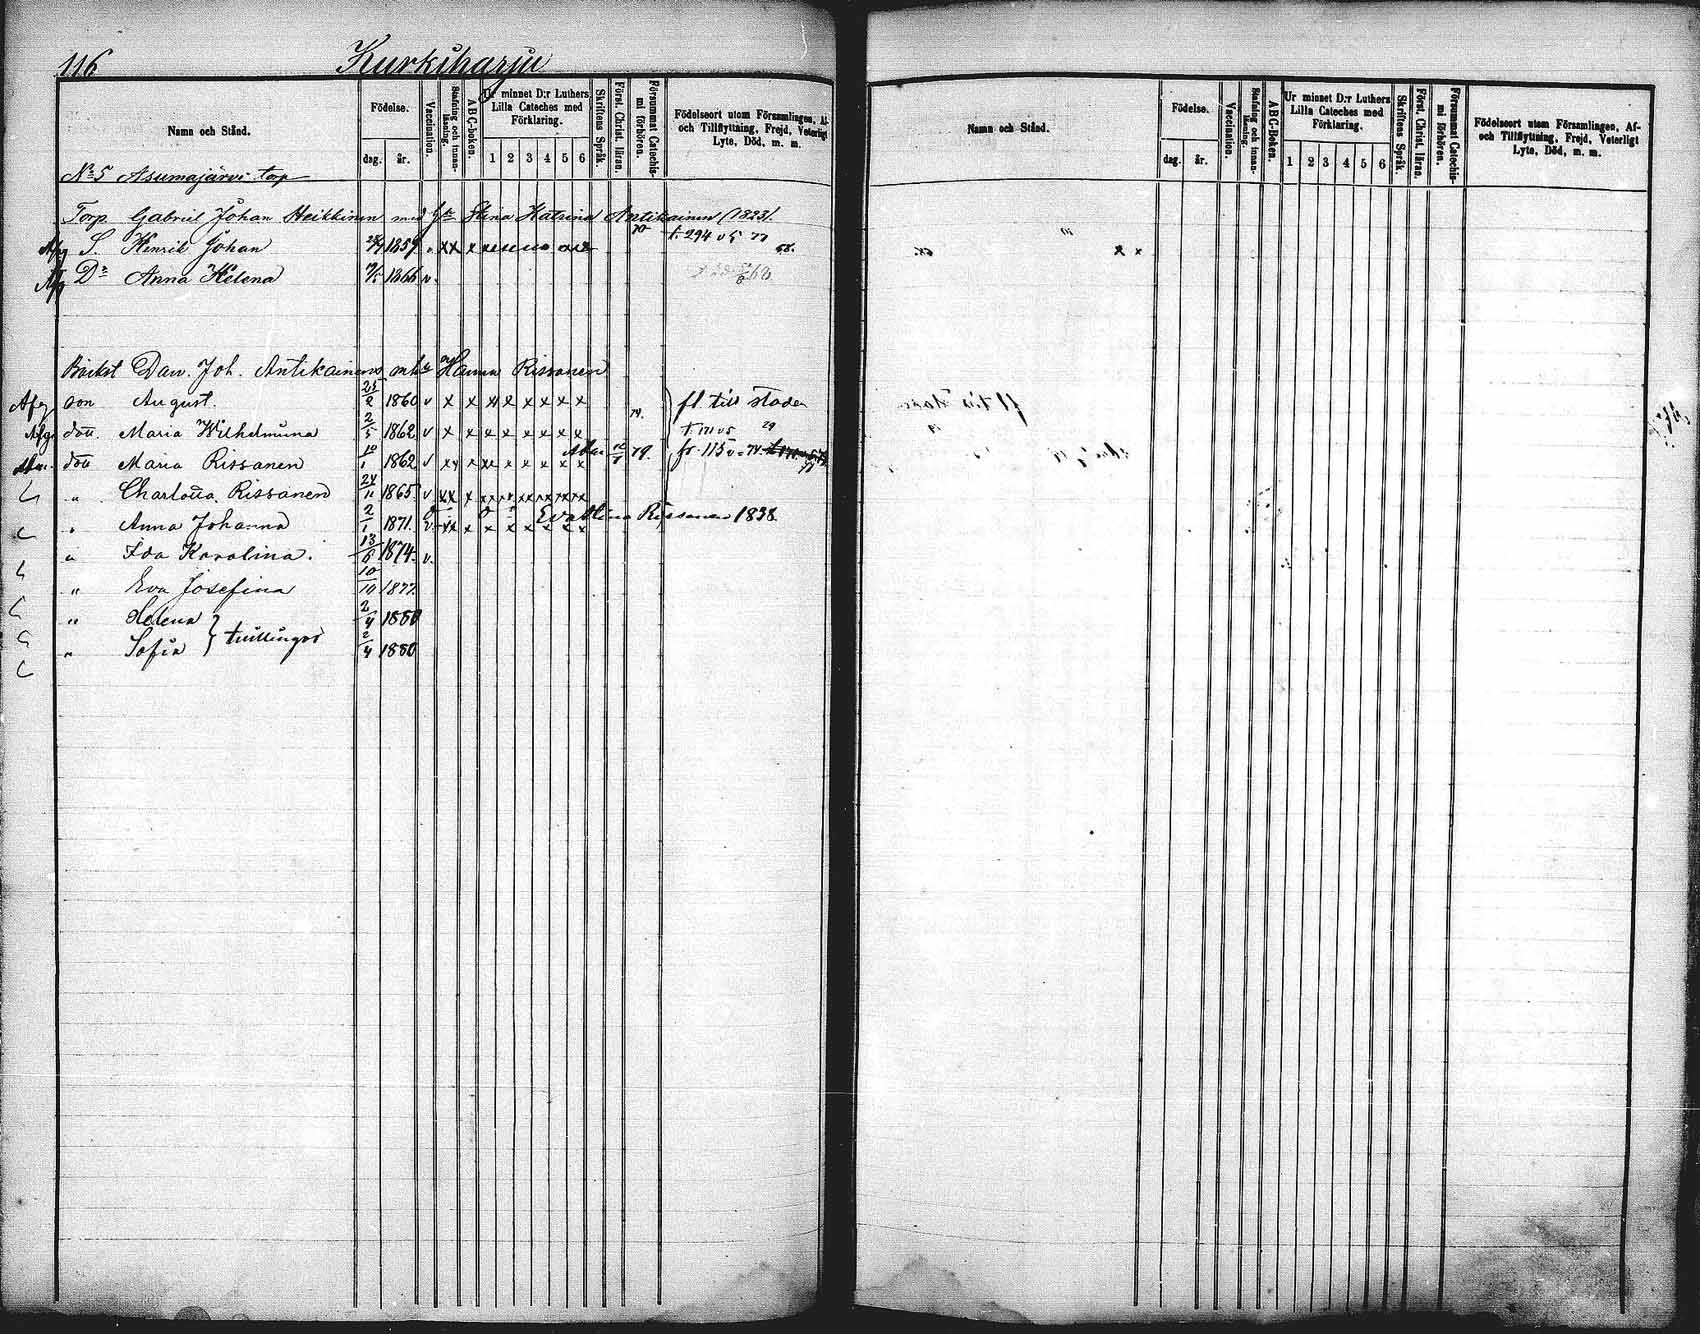 116 Kurkiharju
Namn och Stånd. Födelse. dag. år. Vaccination. Stafning och innanläsning. ABC-boken. Ur minnet D:r Luthers Lilla Cateches med Förklaring. 1 2 3 4 5 6 Skriftens Språk. Först. Christ. läran. Försummat Catechismi förhören. Födelseort utom Församlingen, Af- och Tillflyttning, Frejd, Veterligt Lyte, Död, m. m.
No 5 Asumajärvi torp
Torp. Gabriel Johan Heikkinen med h. Stina Katrina Antikainen (1823).
Afg S. Henrik Johan 1859 v xx x 70 t. 294 v 5 77 68.
Afg Dr Anna Helena 1866 v.
Dav. Joh. Antikainens Hanna Rissanen
Afg son August. 25/2 1860 v x x x x x x x x fl. till staden
Afg. dott. Maria Wilhelmina 2/5 1862 v x x x x x x x x 74. t. 171 v 5 79
dott Maria Rissanen 10/1 1862 v xx xx x x x x x 79. fr. 115 v = 74
" Charlotta Rissanen 24/11 1865 v xx x
" Anna Johanna 2/1 1871. v xx x x x x x x x Eva Stina Rissanen 1838
" Ida Karolina. 13/6 1874 v.
" Eva Josefina 10/10 1877.
" Helena } tvillingar 2/4 1880
" Sofia 2/4 1880
Namn och Stånd. Födelse. dag. år. Vaccination. Stafning och innanläsning. ABC-Boken. Ur minnet D:r Luthers Lilla Cateches med Förklaring. 1 2 3 4 5 6 Skriftens Språk. Först. Christ. läran. Försummat Catechismi förhören. Födelseort utom Församlingen, Af- och Tillflyttning, Frejd, Veterligt Lyte, Död, m. m.